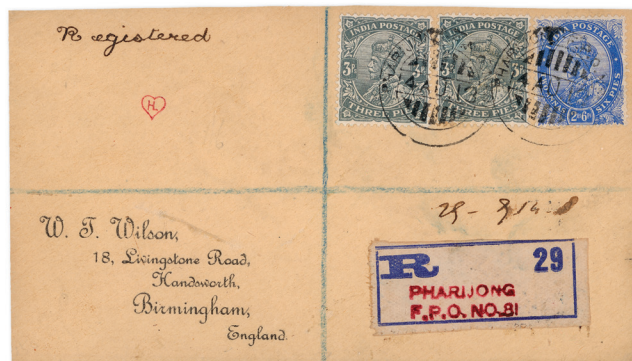 Registered
INDIA POSTAGE
3P
THREE
INDIA POSTAGE
THREE PIES
INDIA POSTAGE
2AS6P
SIX PIES
H.
W. T. Wilson,
18, Livingstone Road,
Handsworth,
Birmingham,
England.
R 29
PHARIJONG
F.P.O. NO.81